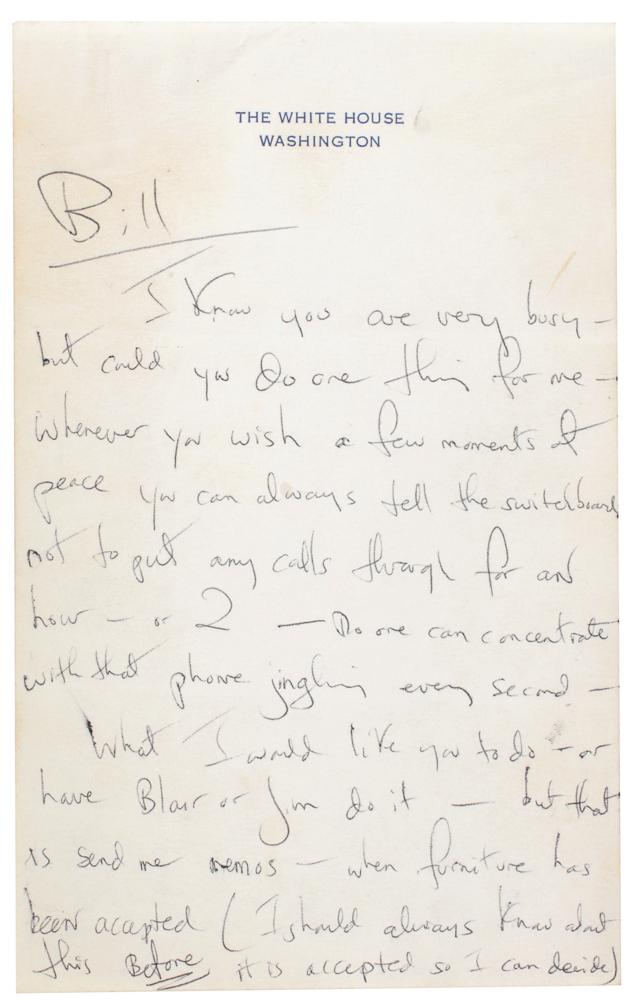 THE WHITE HOUSE
WASHINGTON
Bill
I Know you are very busy –
but could you do one thing for me –
Whenever you wish a few moments of
peace you can always tell the switchboard
not to put any calls through for an
hour – or 2 – No one can concentrate
with that phone jingling every second –
What I would like you to do – or
have Blair or Jim do it – but that
is send me memos – when furniture has
been accepted (I should always Know about
this Before it is accepted so I can decide)